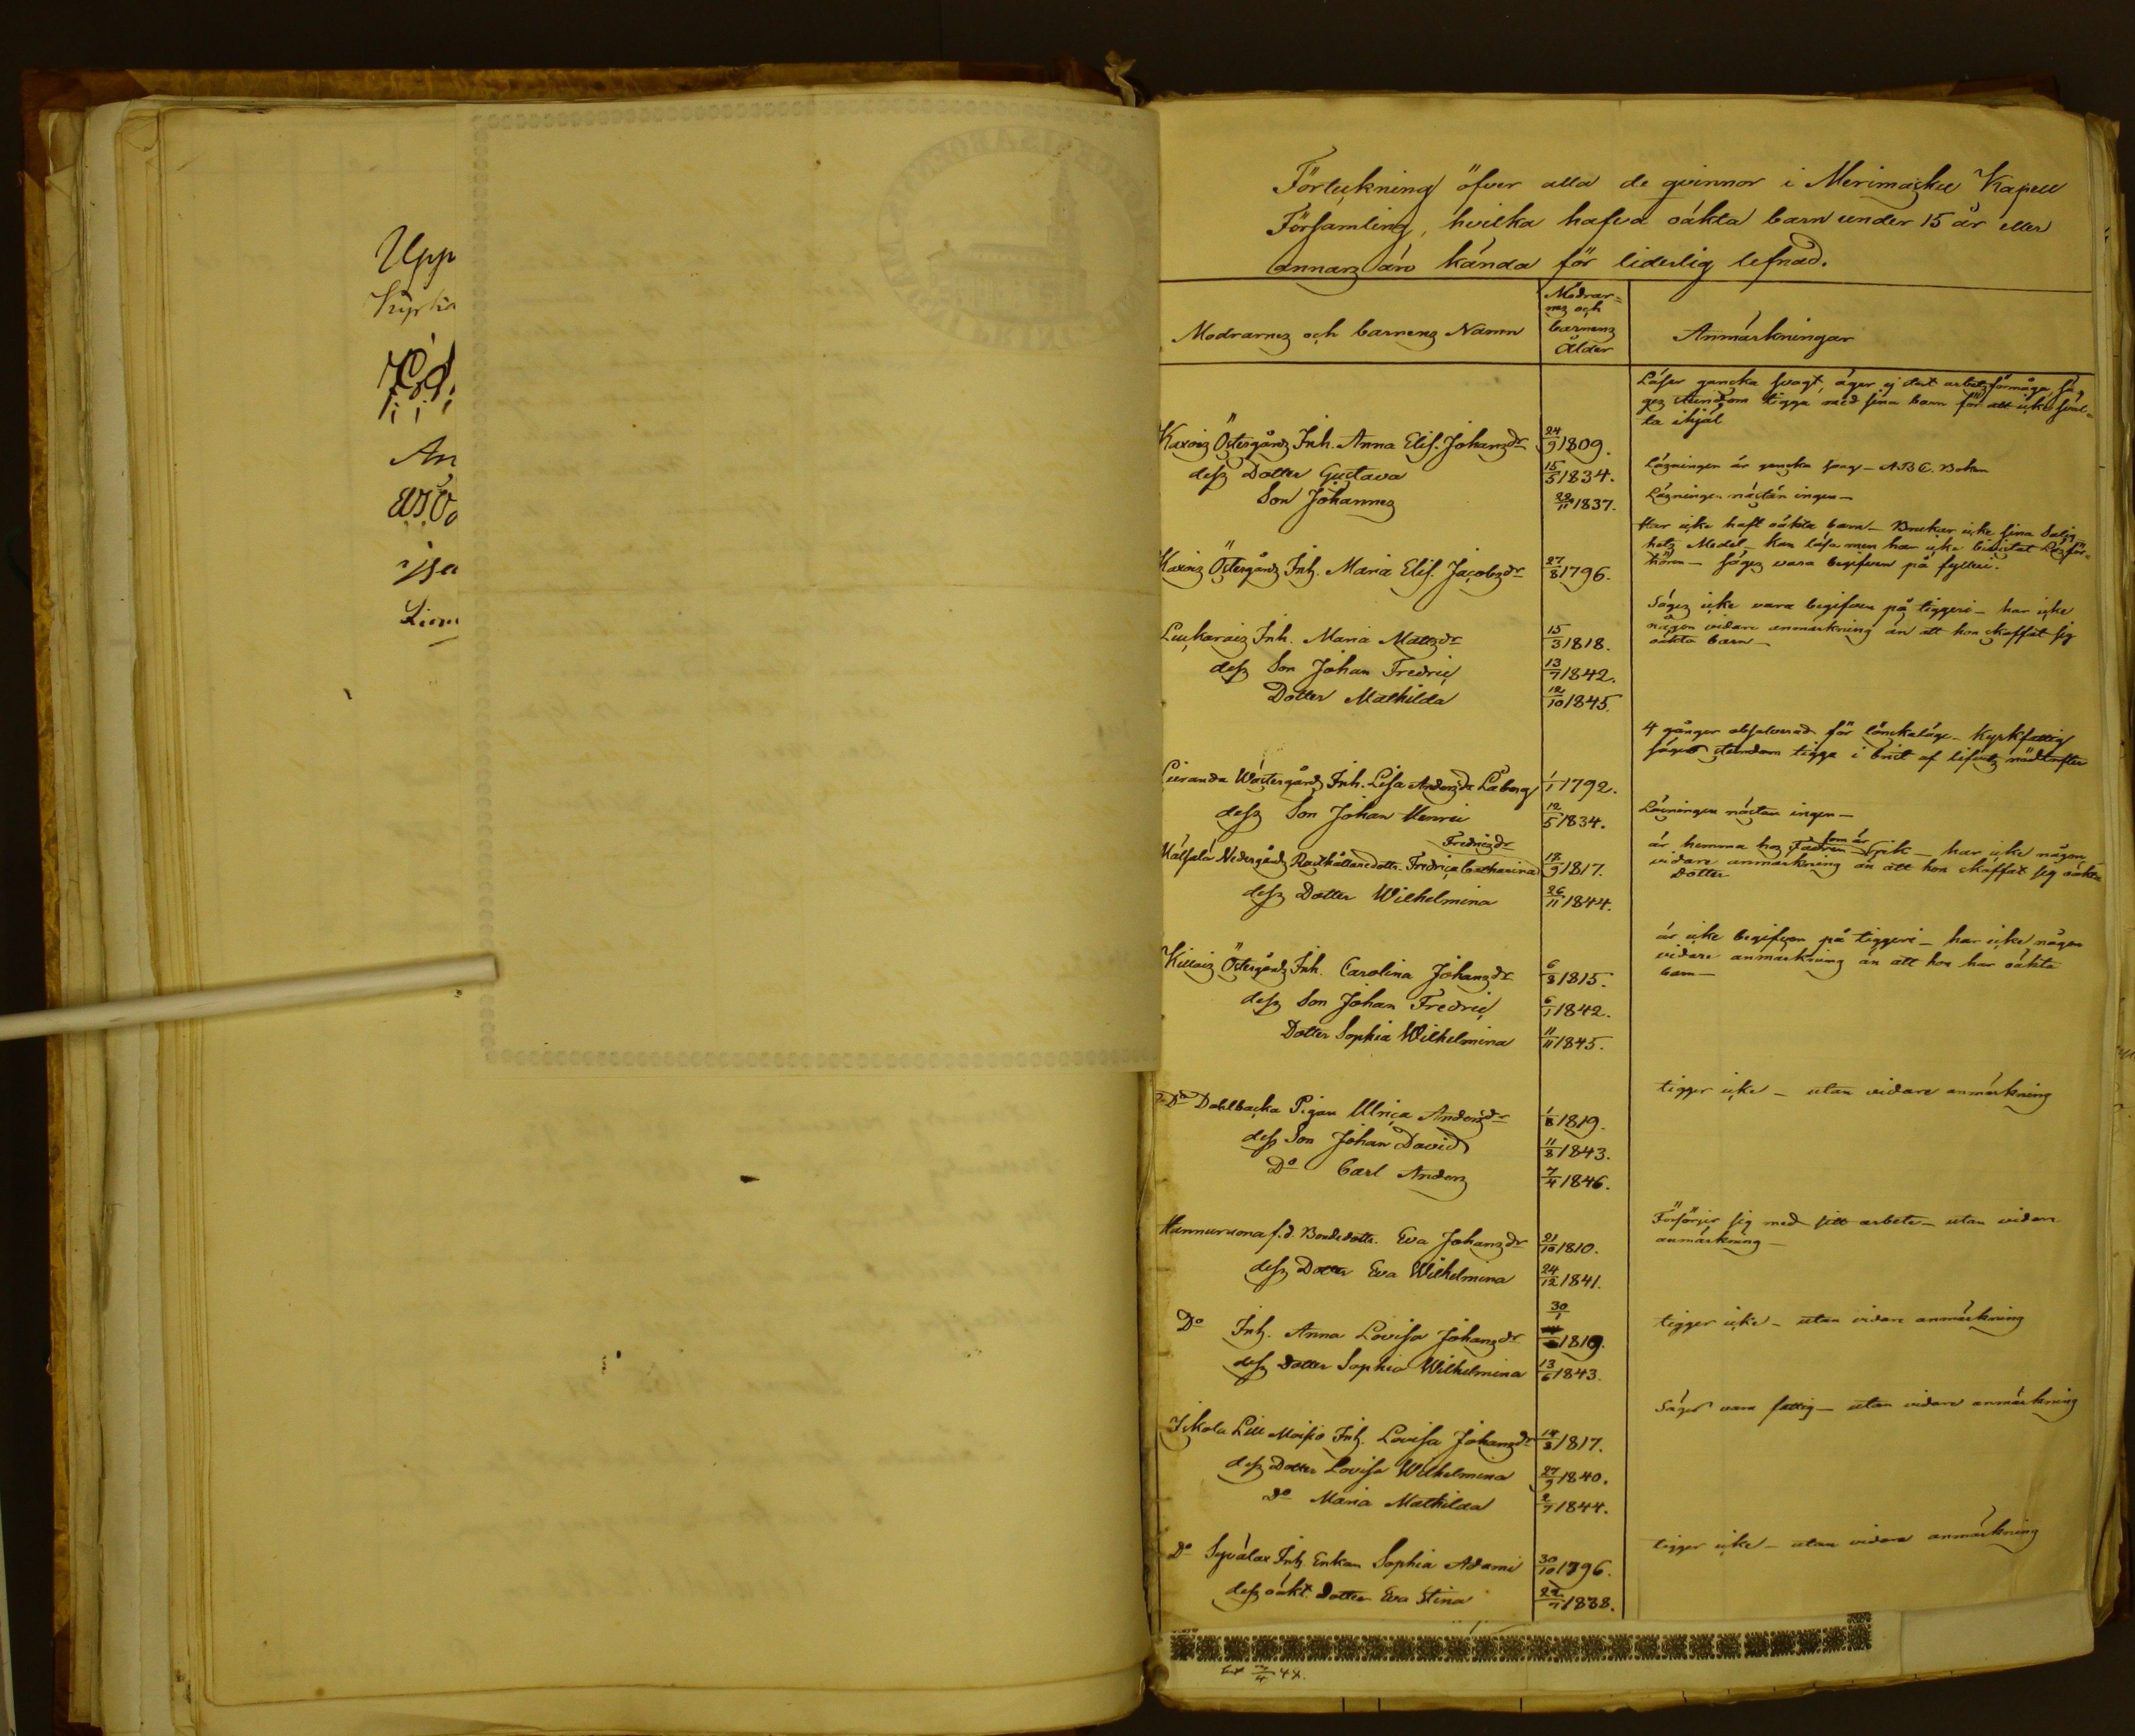 Upp
Kyrko
An
Förteckning öfver alla de qvinnor i Merimasku Kapell
Församling, hvilka hafva oäkta barn under 15 år eller
annars äro kända för liderlig lefnad.
Modrarnes och barnens Namn
Modrar-
nes och
barnens
ålder
Anmärkningar
Läser ganska svagt, äger ej stort arbetsförmåga, sä-
ges stundom tigga med sina barn för att icke sväl-
ta ihjäl
Karvois Östergårds Inh. Anna Elis. Johansdr 24/9 1809.
dess Dotter Gustava 15/5 1834. Läsningen är ganska svag – ABC. Boken
Son Johannes 29/11 1837. Läsningen nästan ingen –
Har icke haft oäkta barn – Brukar icke sina Salig
hets Medel – kan läsa men har icke bivistat Läsför-
hören – säges vara begifven på fylleri.
Karvois Östergårds Inh. Maria Elis. Jacobsdr 27/8 1796.
Säges icke vara begifven på tiggeri – har icke
någon vidare anmärkning än att hon skaffat sig
oäkta barn –
Luckarais Inh. Maria Mattsdr 15/3 1818.
dess Son Johan Fredric 13/7 1842.
Dotter Mathilda 12/10 1845.
4 gånger absolverad för lönskaläge – Kyrkfattig
säges stundom tigga i brist af lifvets nödtorfter
Lieranda Wästergårds Inh. Lisa Andersdr Laberg 1/1 1792.
dess Son Johan Henric 12/5 1834. Läsningen nästan ingen –
Fredricsdr
Nedergårds Rusthållaredotter Fredrica Catharina 18/9 1817.
som är
är hemma hos Fadren – har icke någon
vidare anmärkning än att hon skaffat sig oäkta
Dotter
dess Dotter Wilhelmina 26/11 1844.
är icke begifven på tiggeri – har icke någon
vidare anmärkning än att hon har oäkta
barn –
Killais Östergårds Inh. Carolina Johansdr 6/8 1815.
dess Son Johan Fredric 6/1 1842.
Dotter Sophia Wilhelmina 11/11 1845.
tigger icke – utan vidare anmärkning
Do Dahlbacka Pigan Ulrica Andersdr 1/8 1819.
dess Son Johan David 11/8 1843.
Do Carl Anders 7/4 1846.
Försörjer sig med sitt arbete – utan vidare
anmärkning –
Hannuruona f.d. Bondedotter Eva Johansdr 21/10 1810.
dess Dotter Eva Wilhelmina 24/12 1841.
30/1
Do Inh. Anna Lovisa Johansdr 1819. tigger icke – utan vidare anmärkning
dess Dotter Sophia Wilhelmina 13/6 1843.
Säges vara fattig – utan vidare anmärkning
Iskola Lill Moisio Inh. Lovisa Johansdr 14/8 1817.
dess Dotter Lovisa Wilhelmina 27/9 1840.
Do Maria Mathilda 2/7 1844.
tigger icke – utan vidare anmärkning
Do Syvälax Inh. Enkan Sophia Adami 30/10 1796.
dess oäkt. Dotter Eva Stina 29/7 1838.